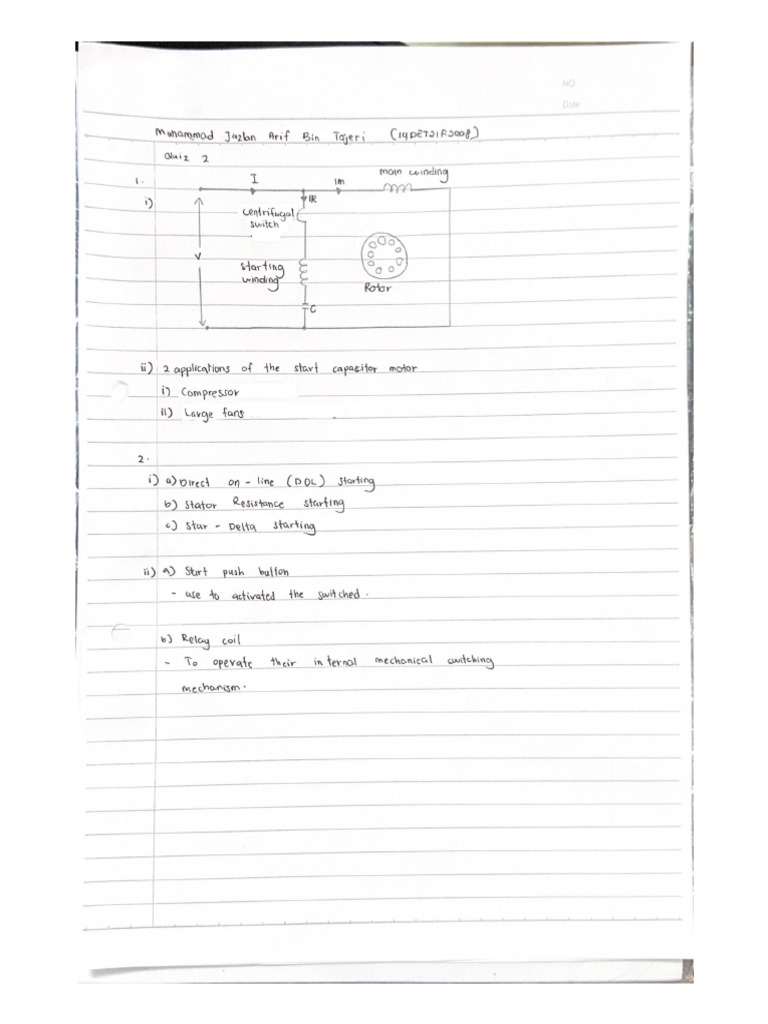 NO.
Date.
Muhammad Jazlan Arif Bin Tajeri (14DET21F2008)
Quiz 2
1.
i)
I
IM
main winding
IR
centrifugal
switch
V
starting
winding
Rotor
C
ii) 2 applications of the start capasitor motor
i) Compressor
ii) Large fans
2.
i) a) Direct on - line (DOL) starting
b) Stator Resistance starting
c) Star - Delta starting
ii) a) Start push button
- use to activated the switched.
b) Relay coil
- To operate their internal mechanical switching
mechanism.